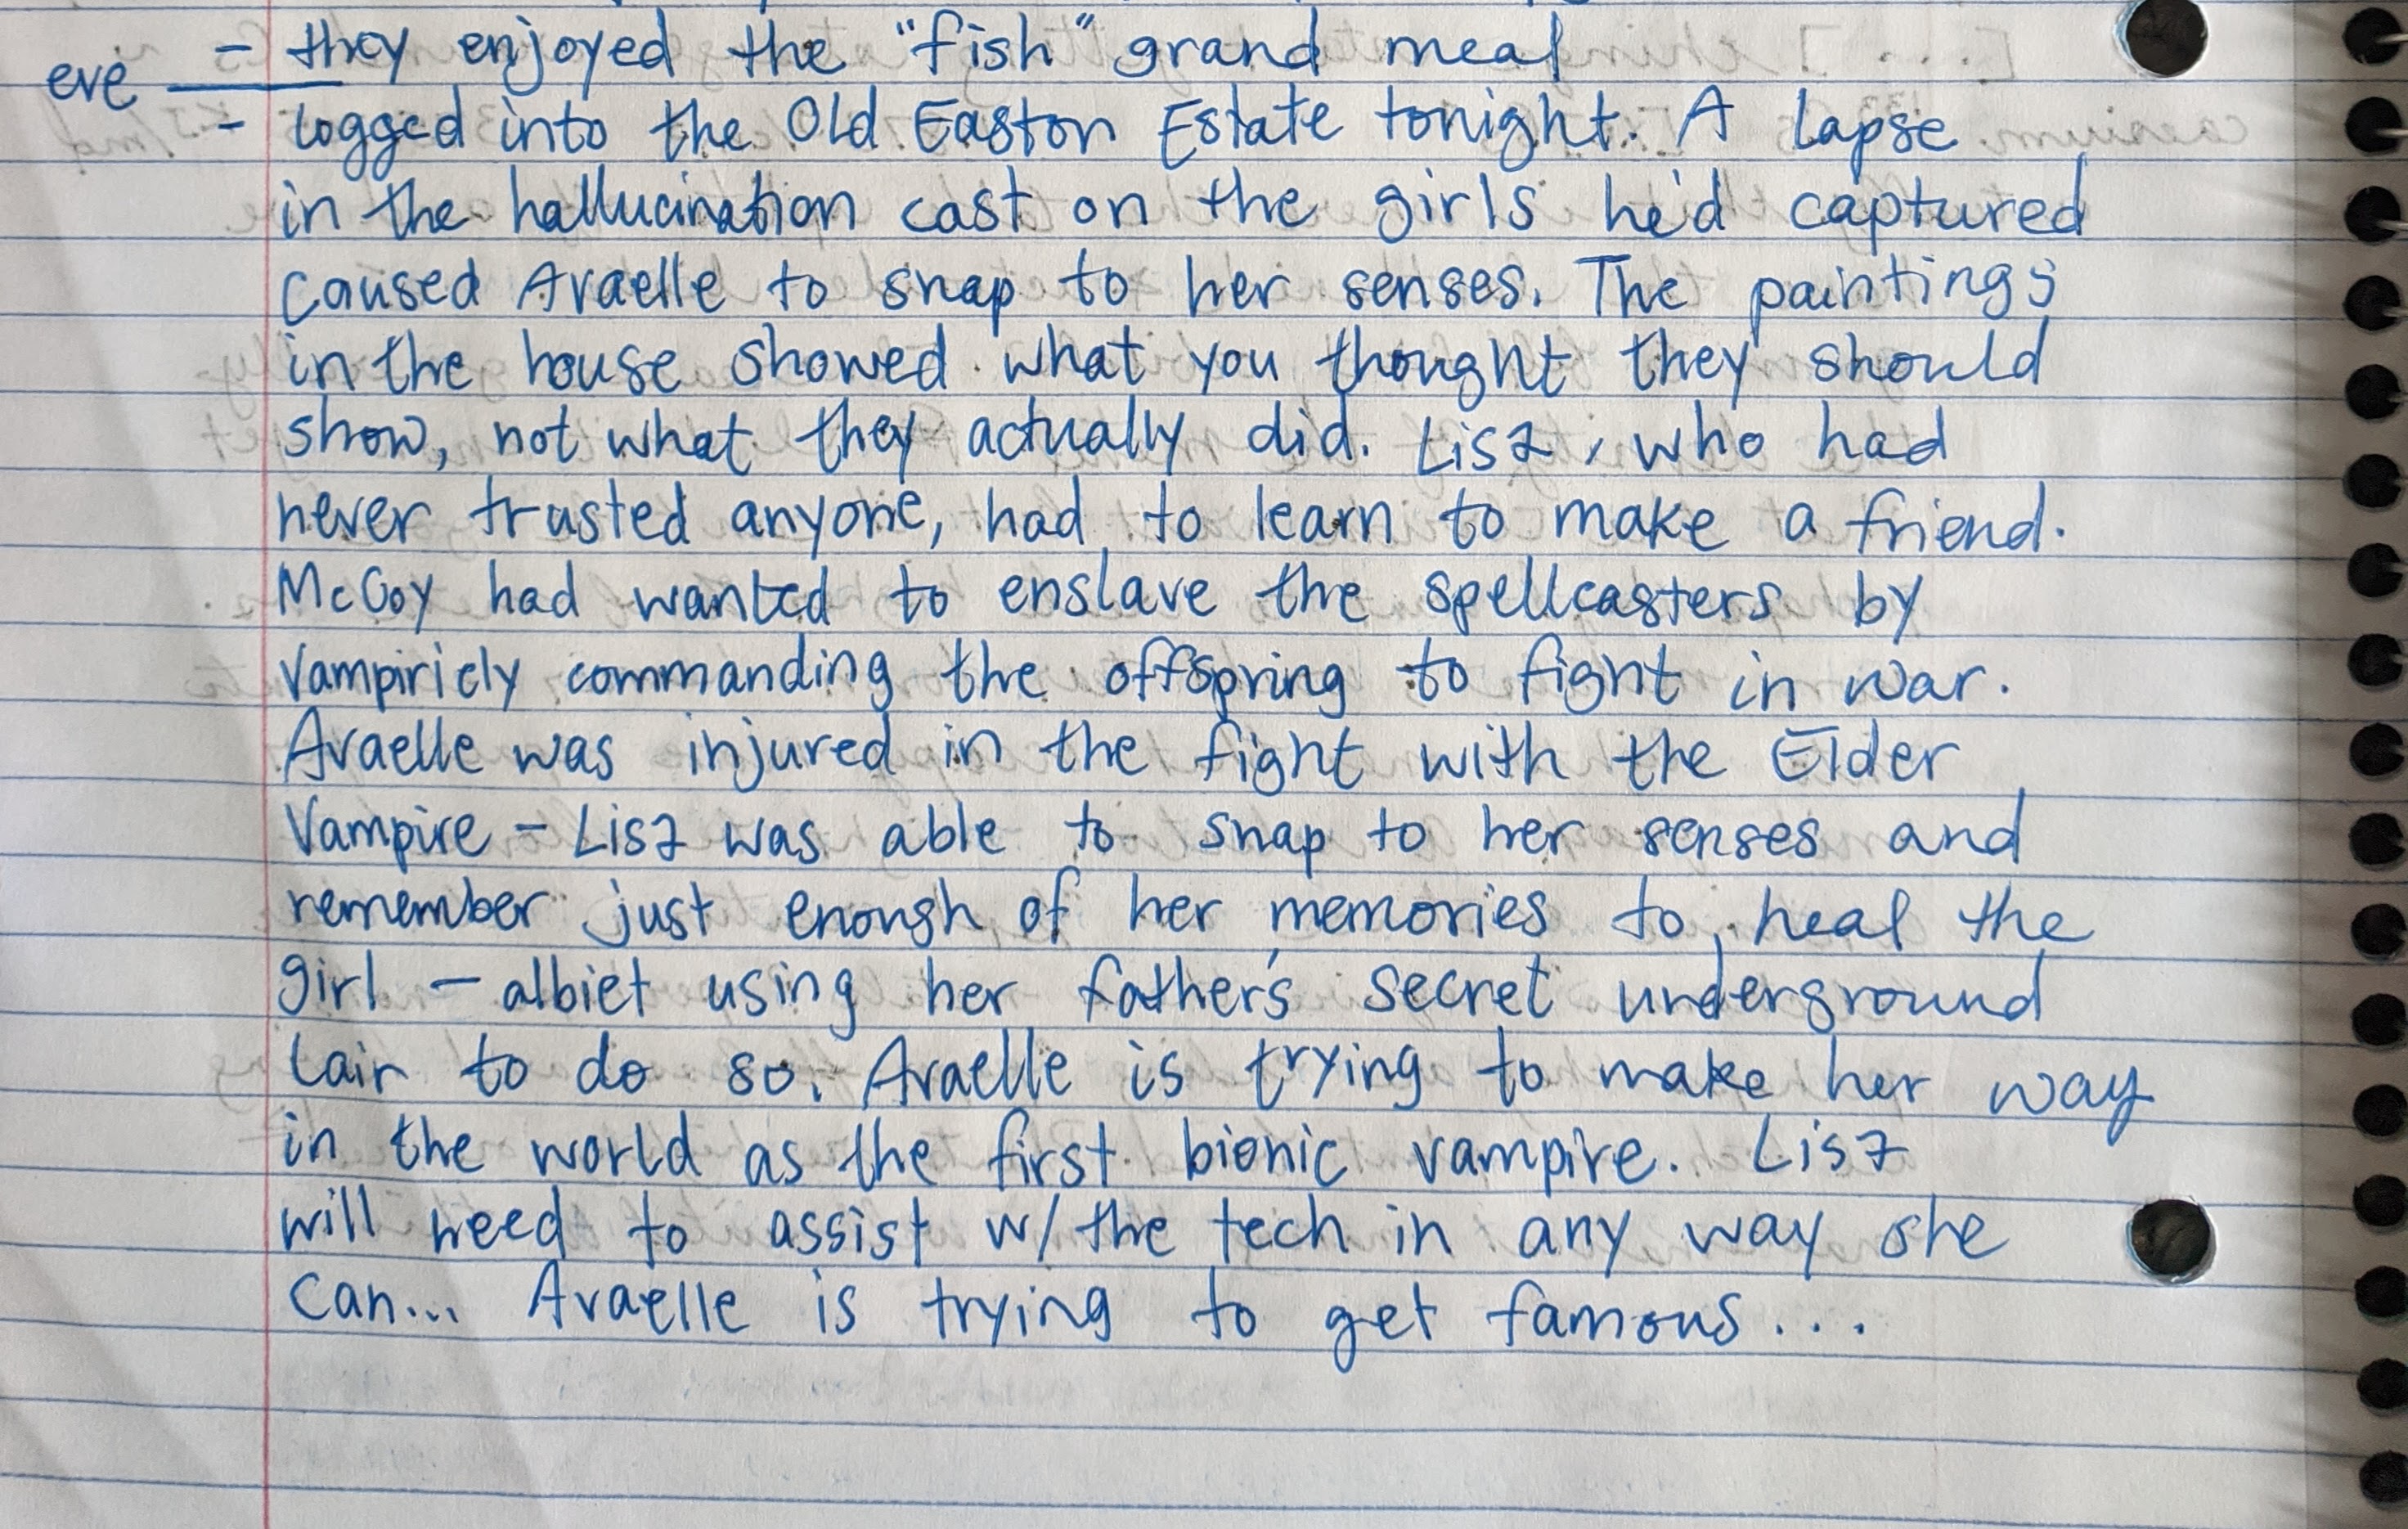 - they enjoyed the "fish" grand meal
eve
- logged into the Old Easton Estate tonight. A lapse
in the hallucination cast on the girls he'd captured
caused Avaelle to snap to her senses. The paintings
in the house showed what you thought they should
show, not what they actually did. Lisz, who had
never trusted anyone, had to learn to make a friend.
McCoy had wanted to enslave the spellcasters by
vampiricly commanding the offspring to fight in war.
Avaelle was injured in the fight with the Elder
Vampire - Lisz was able to snap to her senses and
remember just enough of her memories to heal the
girl - albiet using her father's secret underground
lair to do so. Avaelle is trying to make her way
in the world as the first bionic vampire. Lisz
will need to assist w/ the tech in any way she
can... Avaelle is trying to get famous...